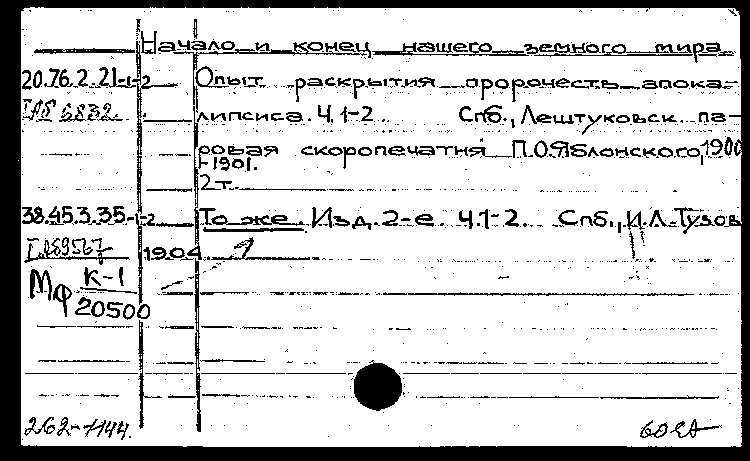 Начало и конец нашего земного мира
20.76.2.21-1-2 Опыт раскрытия пророчеств апока-
6832. липсиса. Ч. 1-2. Спб., Лештуковск. па-
ровая скоропечатня П.О.Яблонского, 1900
-1901.
2 т.
38.45.3.35-1-2 То же. Изд. 2-е. Ч.1-2. Спб., И.Л.Тузов
1904
Мф К-1
20500
262-1144.